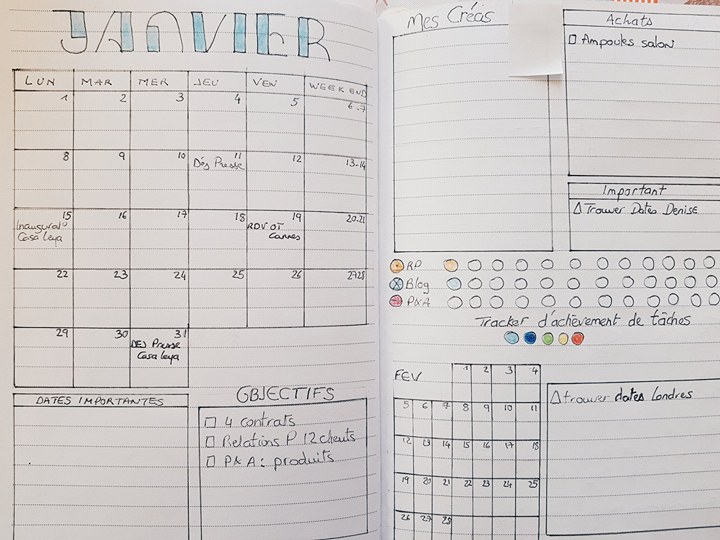 JANVIER
LUN MAR MER JEU VEN WEEK END
1 2 3 4 5 6-7
8 9 10 11 12 13-14
Dés Presse
15 16 17 18 19 20-21
Casa Leya
RDV OT
Cannes
22 23 24 25 26 2728
29 30 31
DES Presse
Casa Leya
DATES IMPORTANTES
OBJECTIFS
4 contrats
Relations P 12 clients
PxA : produits
Mes Créas
Achats
Ampoules salon
Important
Trouver Dates Denise
RP
Blog
PxA
Tracker d'achèvement de tâches
FEV
1 2 3 4
5 6 7 8 9 10 11
12 13 14 15 16 17 18
19 20 21 22 23 24 25
26 27 28
trouver dates Londres